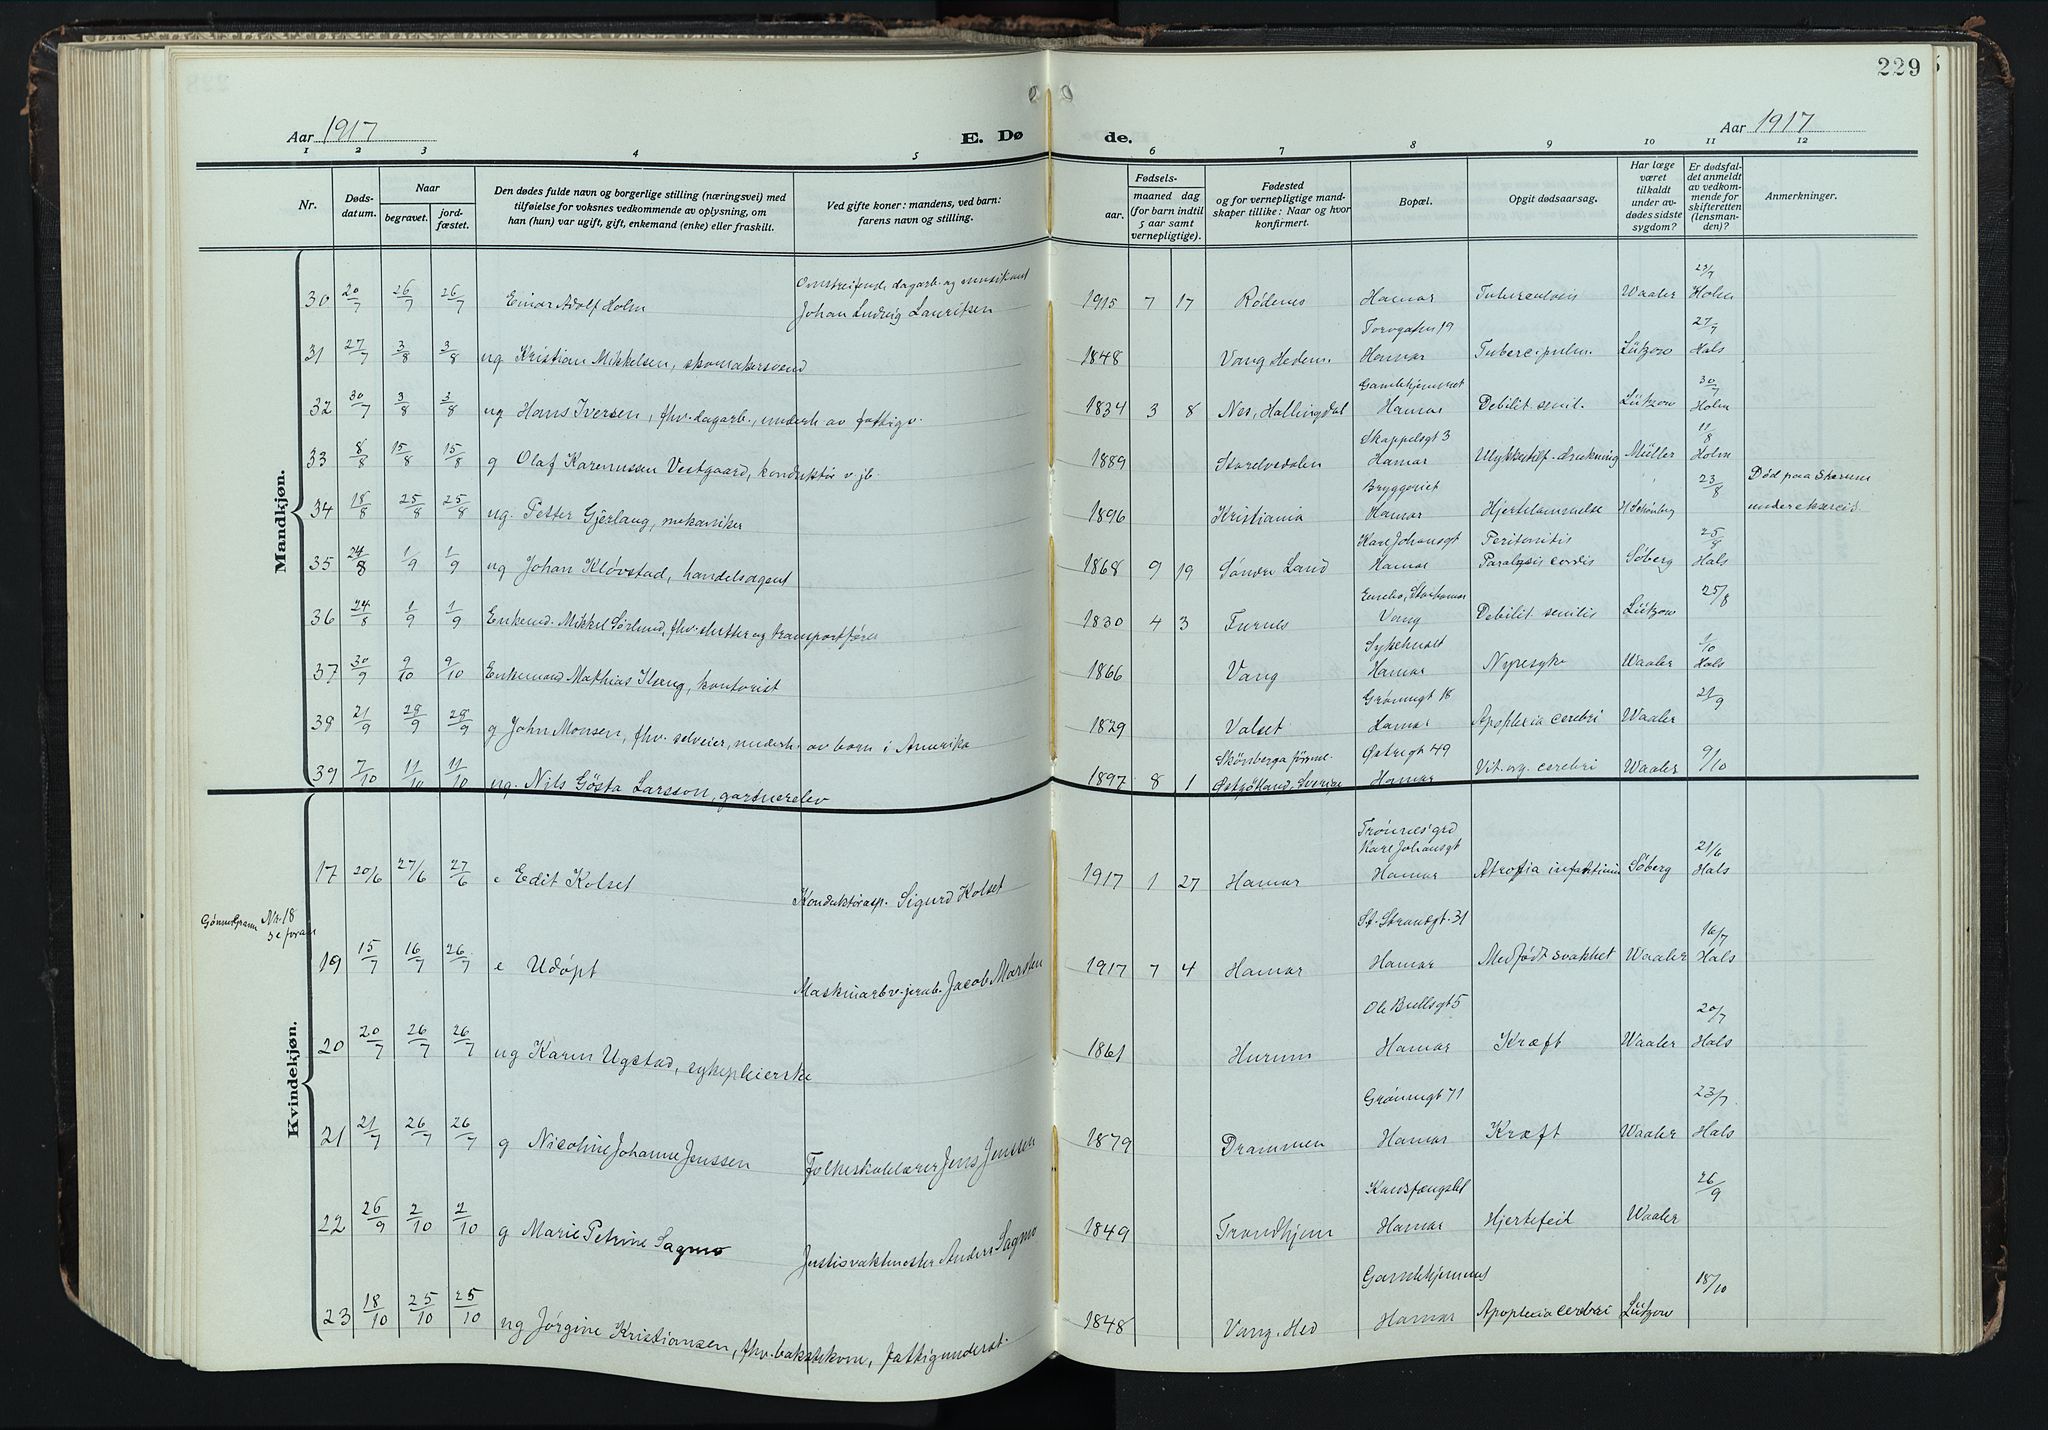 229
Aar 1917
E. Dø de.
Aar 1917
1 2 3 4 5 6 7 8 9 10 11 12
Nr.
Døds-
datum.
Naar
begravet.
jord-
fæstet.
Den dødes fulde navn og borgerlige stilling (næringsvei) med
tilføielse for voksnes vedkommende av oplysning, om
han (hun) var ugift, gift, enkemand (enke) eller fraskilt.
Ved gifte koner: mandens, ved barn:
farens navn og stilling.
Fødsels-
aar. maaned dag
(for barn indtil
5 aar samt
vernepligtige).
Fødested
og for vernepligtige mand-
skaper tillike: Naar og hvor
konfirmert.
Bopæl.
Opgit dødsaarsag.
Har læge
været
tilkaldt
under av-
dødes sidste
sygdom?
Er dødsfal-
det anmeldt
av vedkom-
mende for
skifteretten
(lensman-
den)?
Anmerkninger.
Mandkjøn.
Omstreifende dagarb. og musikant 23/7
30 20/7 26/7 26/7 Einar Adolf Holm Johan Ludvig Lauritsen 1915 7 17 Rødenes Hamar Tuberculosis Waaler Holm
Torvgaten 19 27/7
31 27/7 3/8 3/8 ug Kristian Mikkelsen, skomakersvend 1848 Vang Hedem. Hamar Tuberc. pulm. Lützow Hals
Gamlehjemmet 30/7
32 30/7 3/8 3/8 ug Hans Iversen, fhv. dagarb., underh. av fattigv. 1834 3 8 Nes, Hallingdal Hamar Debilit. senil. Lützow Holm
Skappelsgt 3 11/8
33 8/8 15/8 15/8 g Olaf Karenussen Vestgaard, konduktør v. jb. 1889 Storelvedalen Hamar Ulykkestilf. drukning Müller Holm
Bryggeriet 23/8 Død paa
34 18/8 25/8 25/8 ug. Petter Gjerlaug, mekaniker 1896 Kristiania Hamar Hjertelammelse H Schönberg under eksercis.
Karl Johansgt Peritonitis 25/8
35 24/8 1/9 1/9 ug Johan Kløvstad, handelsagent 1868 9 19 Søndre Land Hamar Paralysis cordis Søberg Hals
Enebo, Storhamar 25/8
36 24/8 1/9 1/9 Enkem. Mikkel Sørlund, fhv. slutter og transportfører 1830 4 3 Furnes Vang Debilit. senilis Lützow
Sykehuset 1/10
37 30/9 9/10 9/10 Enkemand Mathias Ilseng, kontorist 1866 Vang Hamar Nyresyke Waaler Hals
Grønnegt 18 21/9
38 21/9 28/9 28/9 g John Monsen, fhv. selveier, underh. av barn i Amerika 1829 Valset Hamar Apoplexia cerebri Waaler
Skønberga förs. Østregt 49
39 7/10 11/10 11/10 ug. Nils Gösta Larsson, gartnerelev 1897 8 1 Østgötland, Sverige Hamar Vit. org. cerebri Waaler 9/10
Kvindekjøn.
Trønnes' grd
Karl Johansgt 21/6
17 20/6 27/6 27/6 e Edit Kolset Konduktørasp. Sigurd Kolset 1917 1 27 Hamar Hamar Atrofia infantium Søberg Hals
Nr. 18
se foran
St. Strandgt. 31 16/7
19 15/7 16/7 26/7 e Udøpt Maskinarb. v. jernb. Jacob Marsten 1917 7 4 Hamar Hamar Medfødt svakhet Waaler Hals
Ole Bullsgt 5 20/7
20 20/7 26/7 26/7 ug Karen Ugstad, sykepleierske 1861 Hurum Hamar Kræft Waaler Hals
Grønnegt 71 23/7
21 21/7 26/7 26/7 g Nicoline Johanne Jenssen Folkeskolelærer Jens Jenssen 1879 Drammen Hamar Kræft Waaler Hals
Karsfængslet 26/9
22 26/9 2/10 2/10 g Marie Petrine Sagmo Justisvaktmester Anders Sagmo 1849 Trondhjem Hamar Hjertefeil Waaler
Gamlehjemmet 18/10
23 18/10 25/10 25/10 ug Jørgine Kristiansen, fhv. bakstekone, fattigunderst. 1848 Vang. Hed Hamar Apoplexia cerebri Lützow